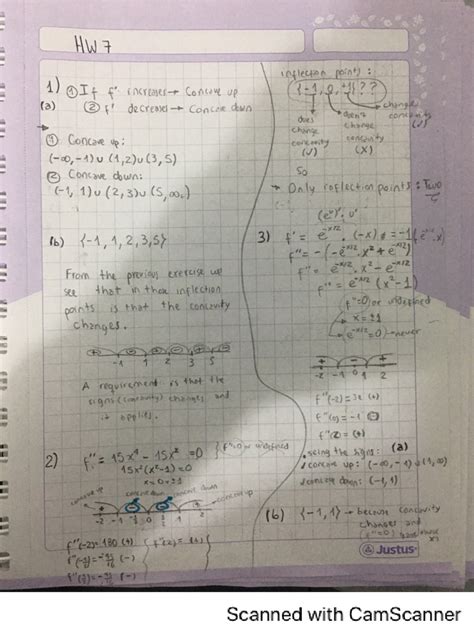 HW 7
1) ① If f' increases → Concave up
(a) ② f' decreases → Concave down
① Concave up:
(-∞,-1)∪(1,2)∪(3,5)
② Concave down:
(-1,1)∪(2,3)∪(5,∞)
(b) {-1,1,2,3,5}
From the previous exercise we
see that in that inflection
points is that the concavity
changes.
-1 1 2 3 5
A requirement is that the
signs (concavity) changes and
it applies.
2) f'' = 15x⁴ - 15x² = 0 } f''=0 or undefined
15x²(x²-1) = 0
x=0, ±1
concave up concave down concave down concave up
-2 -1 -½ 0 ½ 1 2
f''(-2)=180 (+) f''(2)= (+)
inflection points:
{-1, 0, +1}??
does change concavity (✓)
doesn't change concavity (X)
change concavity (✓)
So
→ Only inflection points: Two
(eᵘ)'. u'
3) f' = e^(-x²/2) . (-x)
f'' = e^(-x²/2) . x² - e^(-x²/2)
f'' = e^(-x²/2) (x²-1)
f''=0 or undefined
x=±1
e^(-x²/2)=0 → never
-2 -1 0 1 2
f''(0) = -1
f''(2) = (+)
using the signs: (a)
concave up: (-∞,-1)∪(1,∞)
concave down: (-1,1)
(b) {-1,1} → because concavity
changes and
Justus
Scanned with CamScanner